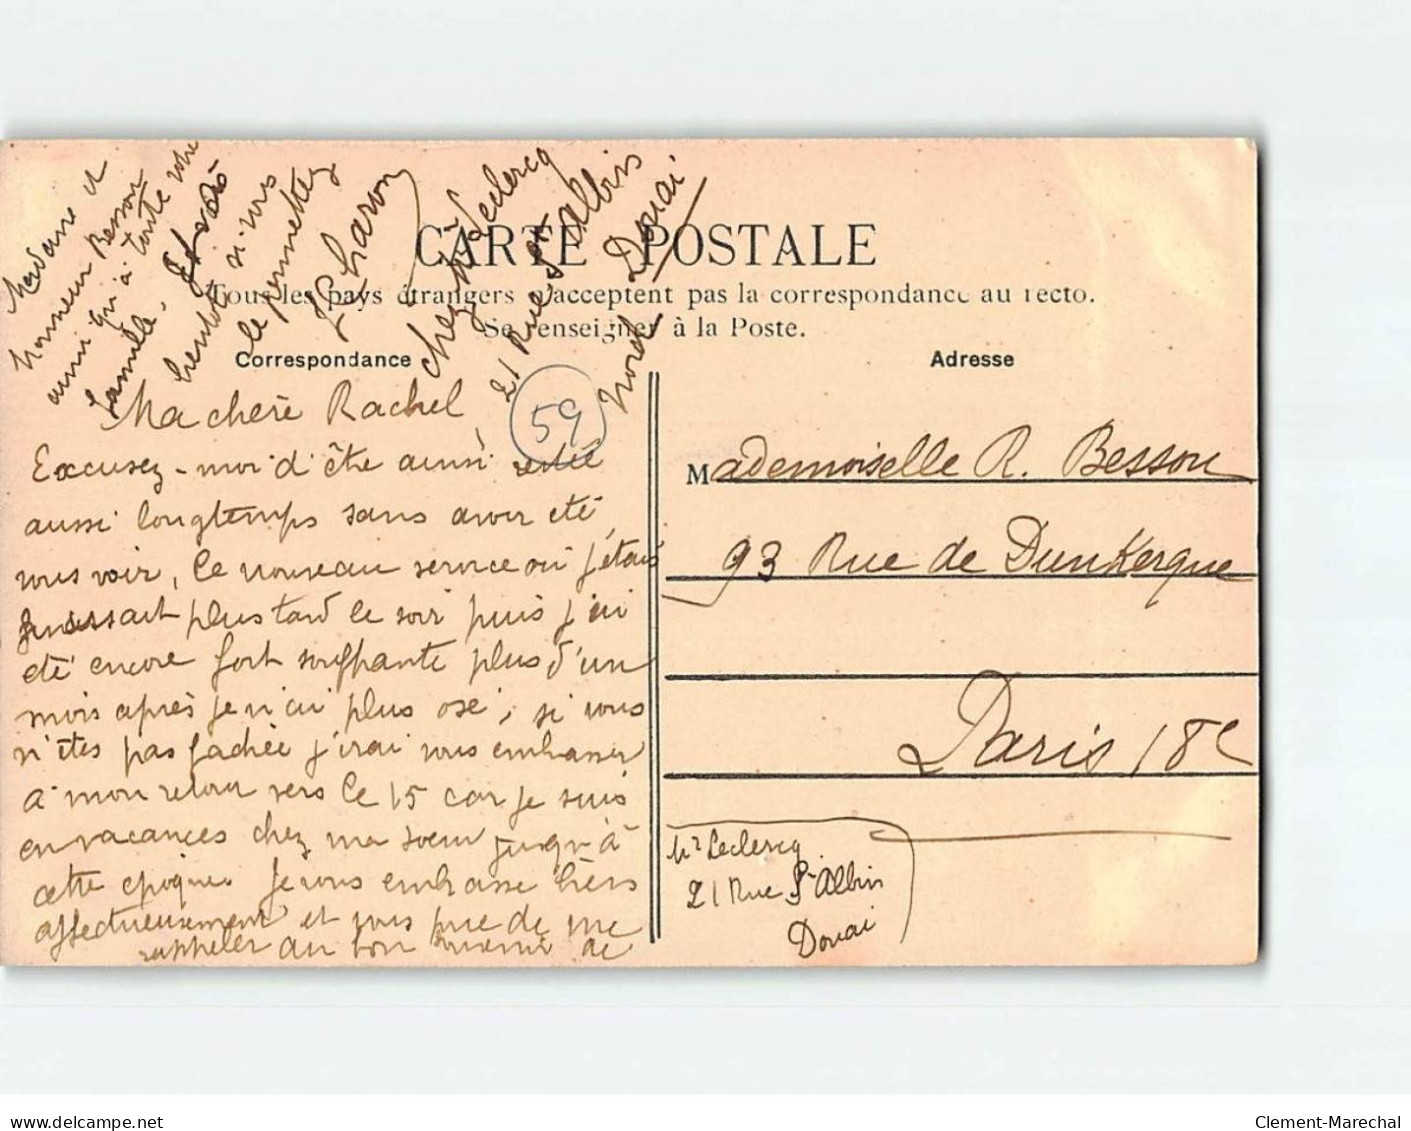 CARTE POSTALE
Tous les pays étrangers n'acceptent pas la correspondance au recto.
Se renseigner à la Poste.
Correspondance
Adresse
59
Ma chère Rachel
Excusez-moi d'être ainsi restée
aussi longtemps sans avoir été
vous voir, le nouveau service où j'étais
finissait plus tard le soir puis j'ai
été encore fort souffrante plus d'un
mois après je n'ai plus osé, si vous
n'êtes pas fachée j'irai vous embrasser
à mon retour vers le 15 car je suis
en vacances chez ma soeur jusqu'à
cette époque. Je vous embrasse biens
affectueusement et vous prie de me
rappeler au bon souvenir de
Madame et
Monsieur Besson
ainsi qu'à toute votre
famille.
bientôt si vous
le permettez
chez Mr Leclercq
21 Rue St Albin
Douai
Nord
Mademoiselle R. Besson
93 Rue de Dunkerque
Paris 18e
Mr Leclercq
21 Rue St Albin
Douai
www.delcampe.net
Clement-Marechal